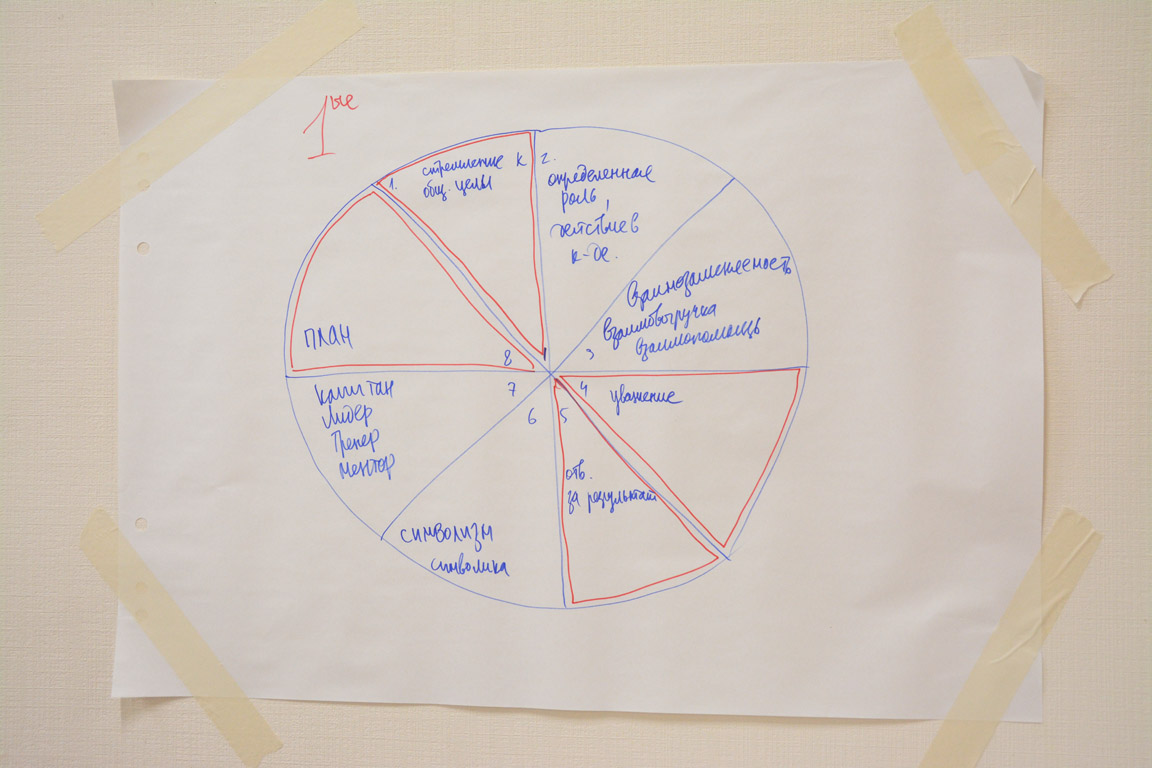 1ые
1. стремление к
общ. цели
2.
определенная
роль,
действие в
к-де.
Взаимозаменяемость
Взаимовыручка
Взаимопомощь
3
4
уважение
5
отв.
за результат
6
символизм
символика
7
капитан
лидер
тренер
ментор
8
план